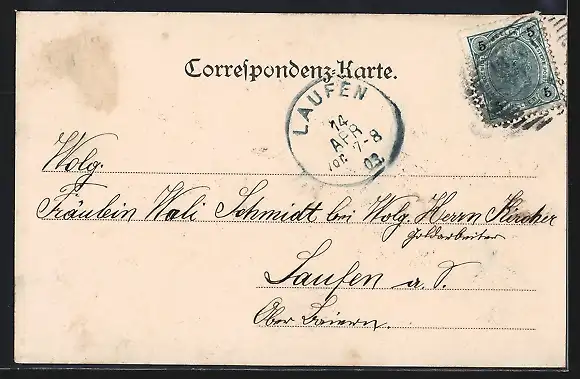 Correspondenz-Karte.
5 5
5
LAUFEN
14
APR
7-8
03
Wolg.
Fräulein Wali Schmidt bei Wolg. Herrn Kircher
Goldarbeiter
Laufen a. S.
Ober Baiern.